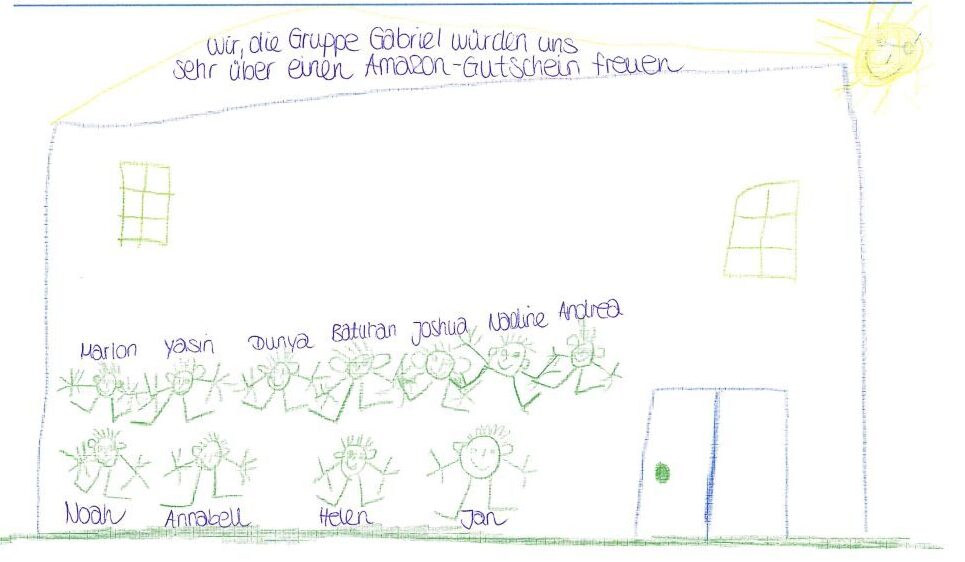 Wir, die Gruppe Gabriel würden uns
sehr über einen Amazon-Gutschein freuen
Marlon Yasin Dunya Baturan Joshua Nadine Andrea
Noah Annabell Helen Jan